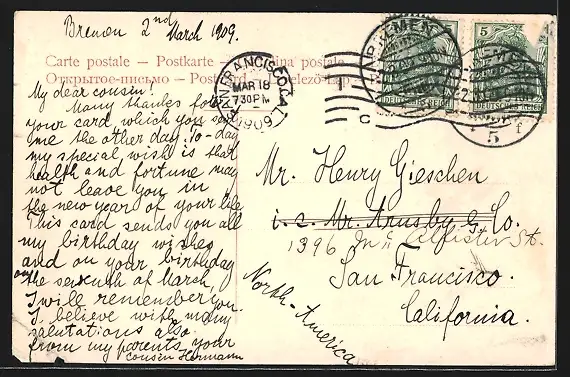 Bremen 2nd March 1909.
Carte postale — Postkarte — Cartolina postale
Открытое письмо — Postcard — Levelező-Lap
My dear cousin!
Many thanks for
your card which you sent
me the other day. To-day
my special wish is that
health and fortune may
not leave you in
the new year of your life
This card sends you all
my birthday wishes
and on your birthday
on the seventh of March,
I will remember you.
I believe with many
salutations also
from my parents your
cousin Hermann
SAN FRANCISCO, CAL.
MAR 18
730PM
1909
BREMEN
5
5 f
DEUTSCHES REICH
DEUTSCHES REICH
Mr. Henry Gieschen
Mr. Arnsby & Co.
1396
St.
San Francisco.
California.
North-America